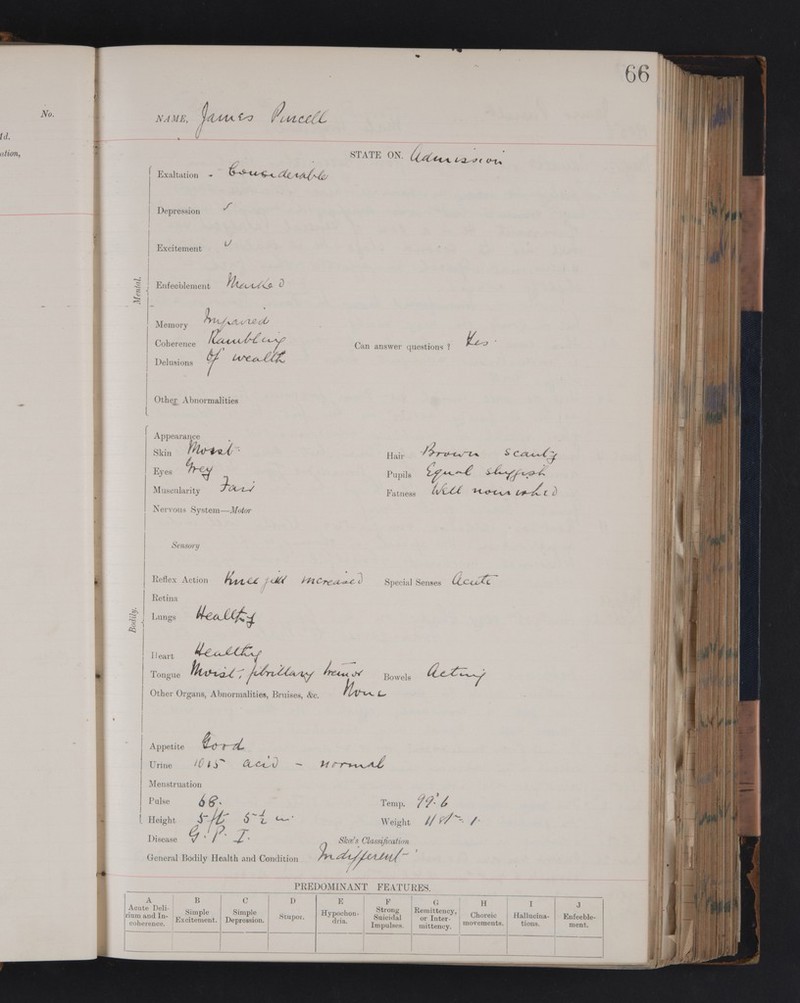 66
No.
NAME, James Purcell
STATE ON. Admission
Exaltation - Considerable
Depression
Excitement
Mental.
Enfeeblement Marked
Memory Impaired
Coherence Rambling Can answer questions? Yes.
Delusions Of wealth
Other Abnormalities
Appearance
Skin Moist Hair Brown Scanty
Eyes Grey Pupils Equal sluggish
Muscularity Fair Fatness Well nourished
Nervous System—Motor
Sensory
Bodily.
Reflex Action Knee jerk increased Special Senses Acute
Retina
Lungs Healthy
Heart Healthy
Tongue Moist, fibrillary tremor Bowels Acting
Other Organs, Abnormalities, Bruises, &c. None
Appetite Good
Urine 1015 acid - normal
Menstruation
Pulse 68. Temp. 99.6
Height 5 ft 5½ in. Weight 11 st. 1.
Disease G.P.I. Skae's Classification
General Bodily Health and Condition Indifferent
PREDOMINANT FEATURES.
A B C D E F G H I J
Acute Delirium and Incoherence. Simple Excitement. Simple Depression. Stupor. Hypochondria. Strong Suicidal Impulses. Remittency, or Intermittency. Choreic movements. Hallucinations. Enfeeblement.